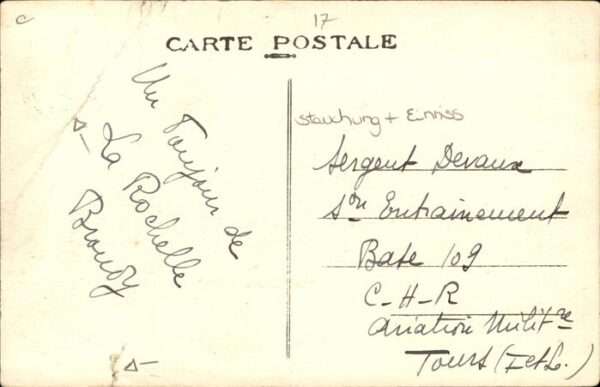 C
17
CARTE POSTALE
Un Toujour de
La Rochelle
Stauchung + Einriss
Sergent Devaux
Son Entrainement
Base 109
C-H-R
Aviation Milit re
Tours (I et L.)